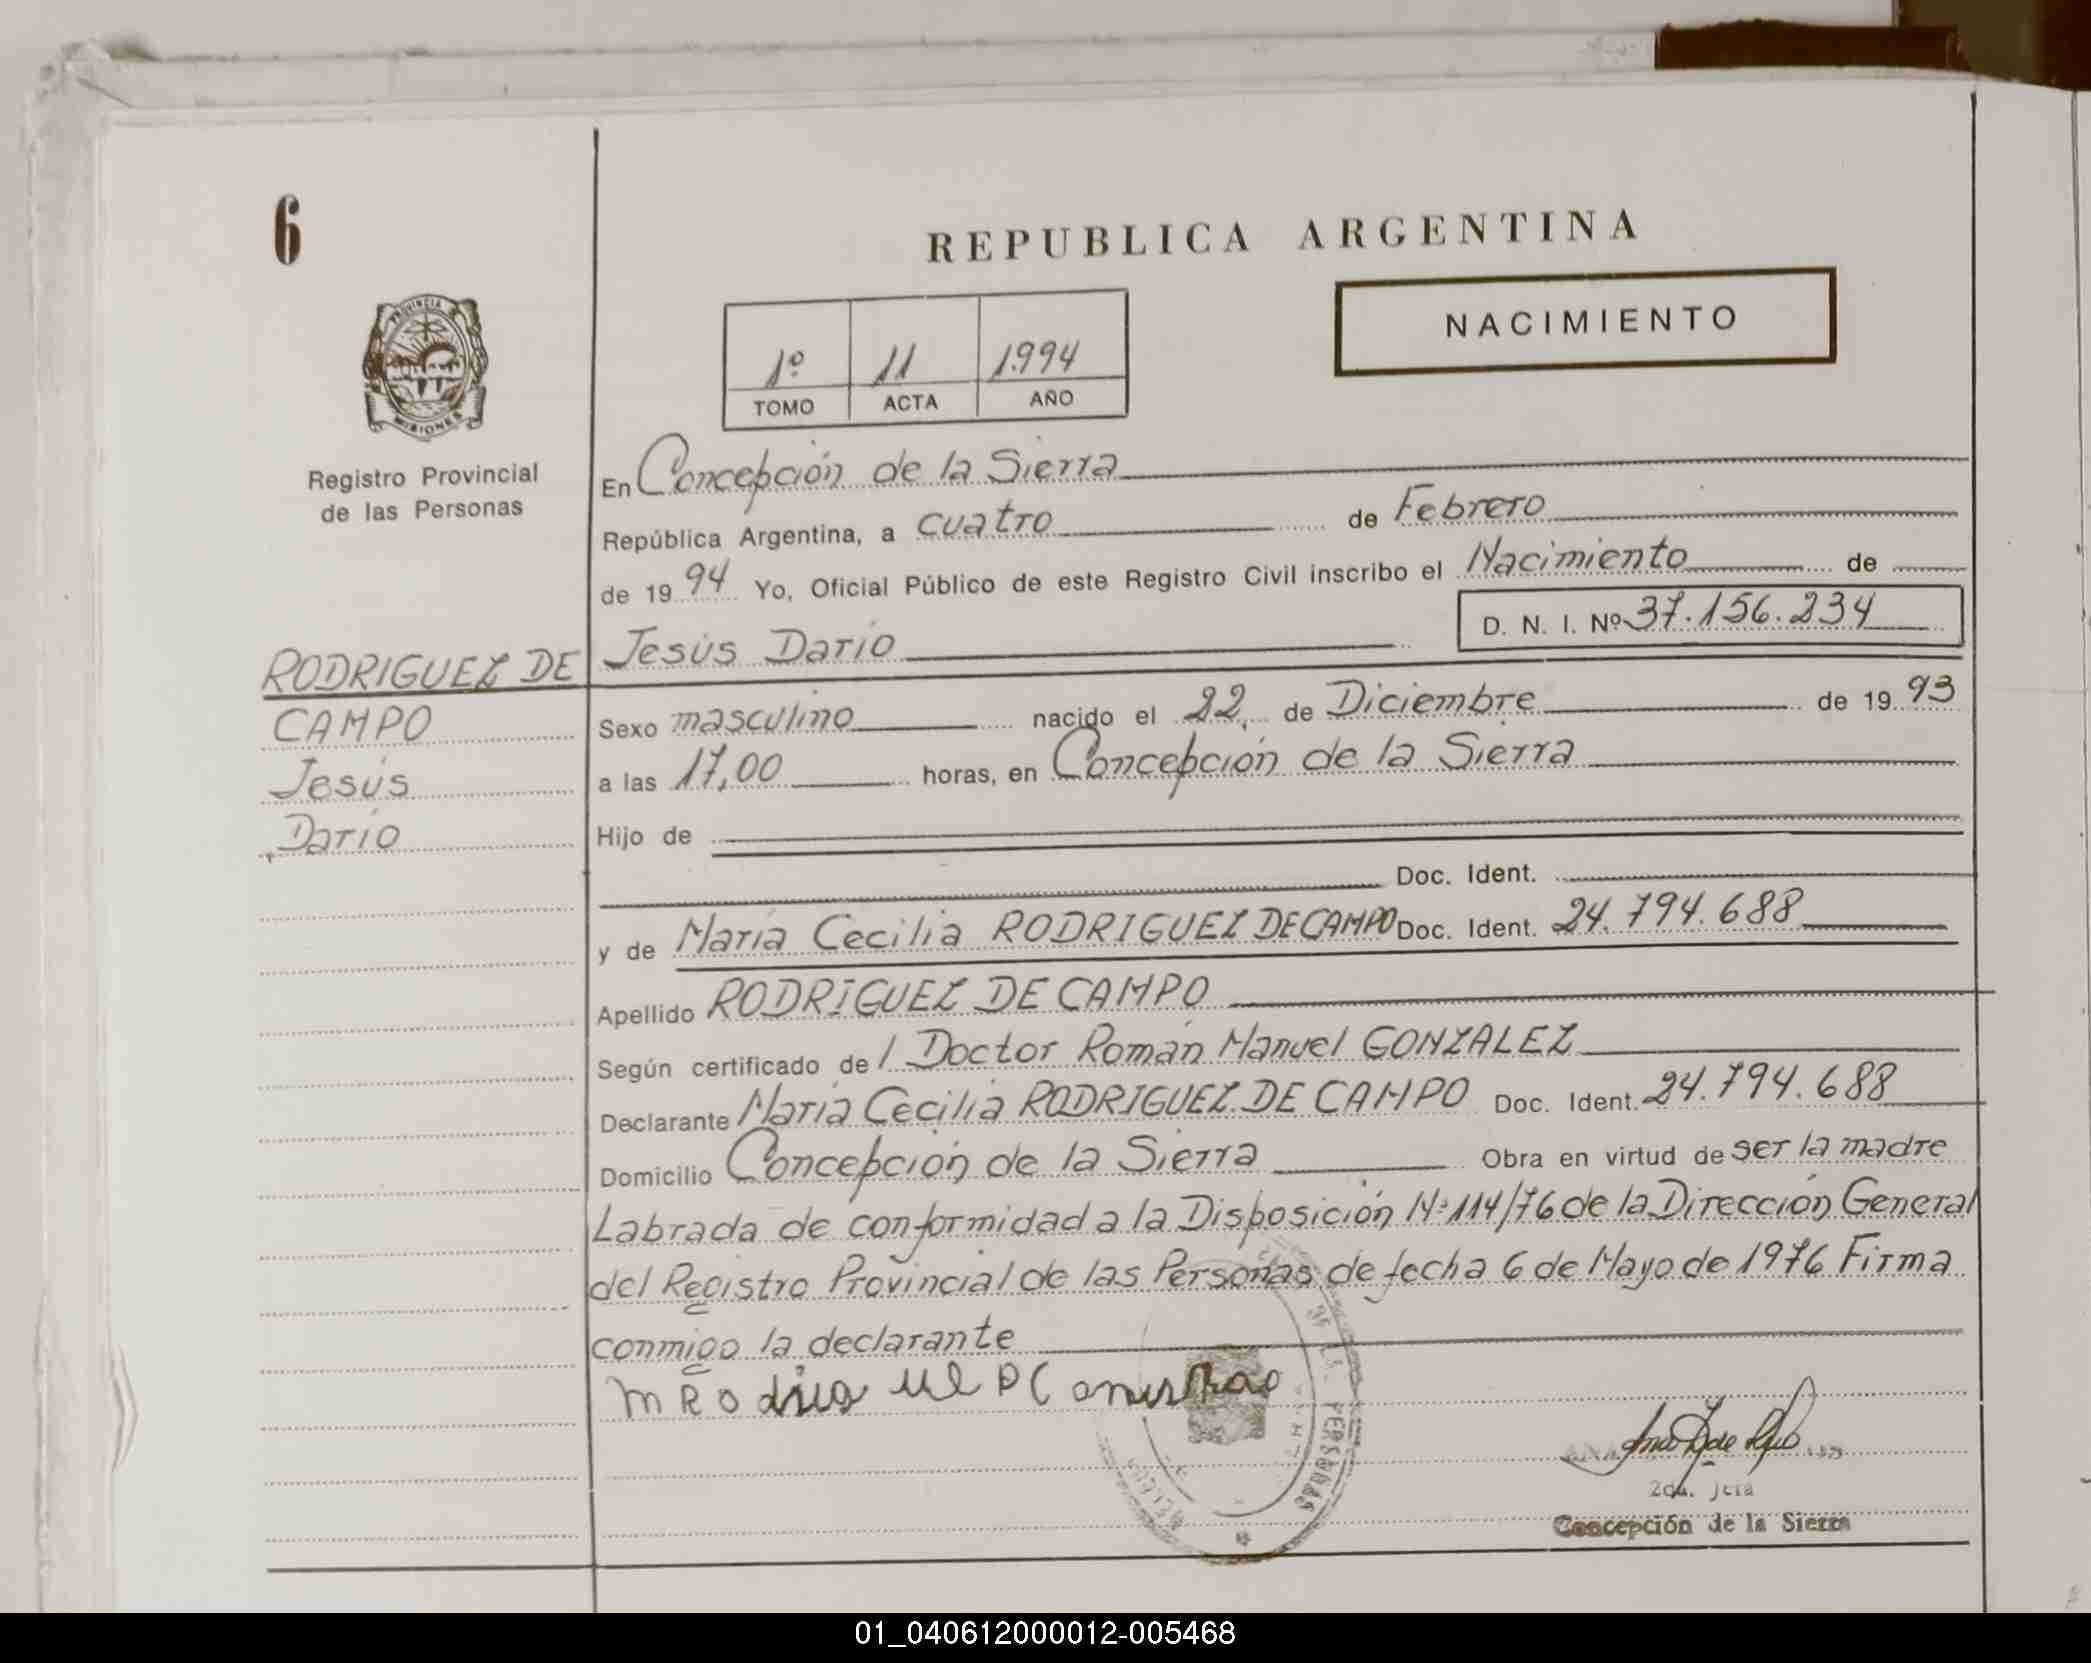 6
REPUBLICA ARGENTINA
NACIMIENTO
1º 11 1.994
TOMO ACTA AÑO
PROVINCIA
MISIONES
Registro Provincial
de las Personas
En Concepción de la Sierra
República Argentina, a cuatro de Febrero
de 19 94 Yo, Oficial Público de este Registro Civil inscribo el Nacimiento de
D. N. I. Nº 37.156.234
RODRIGUEZ DE
CAMPO
Jesús
Darío
Jesús Darío
Sexo masculino nacido el 22, de Diciembre de 19 93
a las 17,00 horas, en Concepción de la Sierra
Hijo de
Doc. Ident.
y de María Cecilia RODRIGUEZ DE CAMPO Doc. Ident. 24.794.688
Apellido RODRIGUEZ DE CAMPO
Según certificado de l Doctor Román Manuel GONZALEZ
Declarante María Cecilia RODRIGUEZ DE CAMPO Doc. Ident. 24.794.688
Domicilio Concepción de la Sierra Obra en virtud de ser la madre
Labrada de conformidad a la Disposición Nº 114/76 de la Dirección General
del Registro Provincial de las Personas de fecha 6 de Mayo de 1976 Firma
conmigo la declarante
DE LAS PERSONAS
2da. Jefa
Concepción de la Sierra
01_040612000012-005468